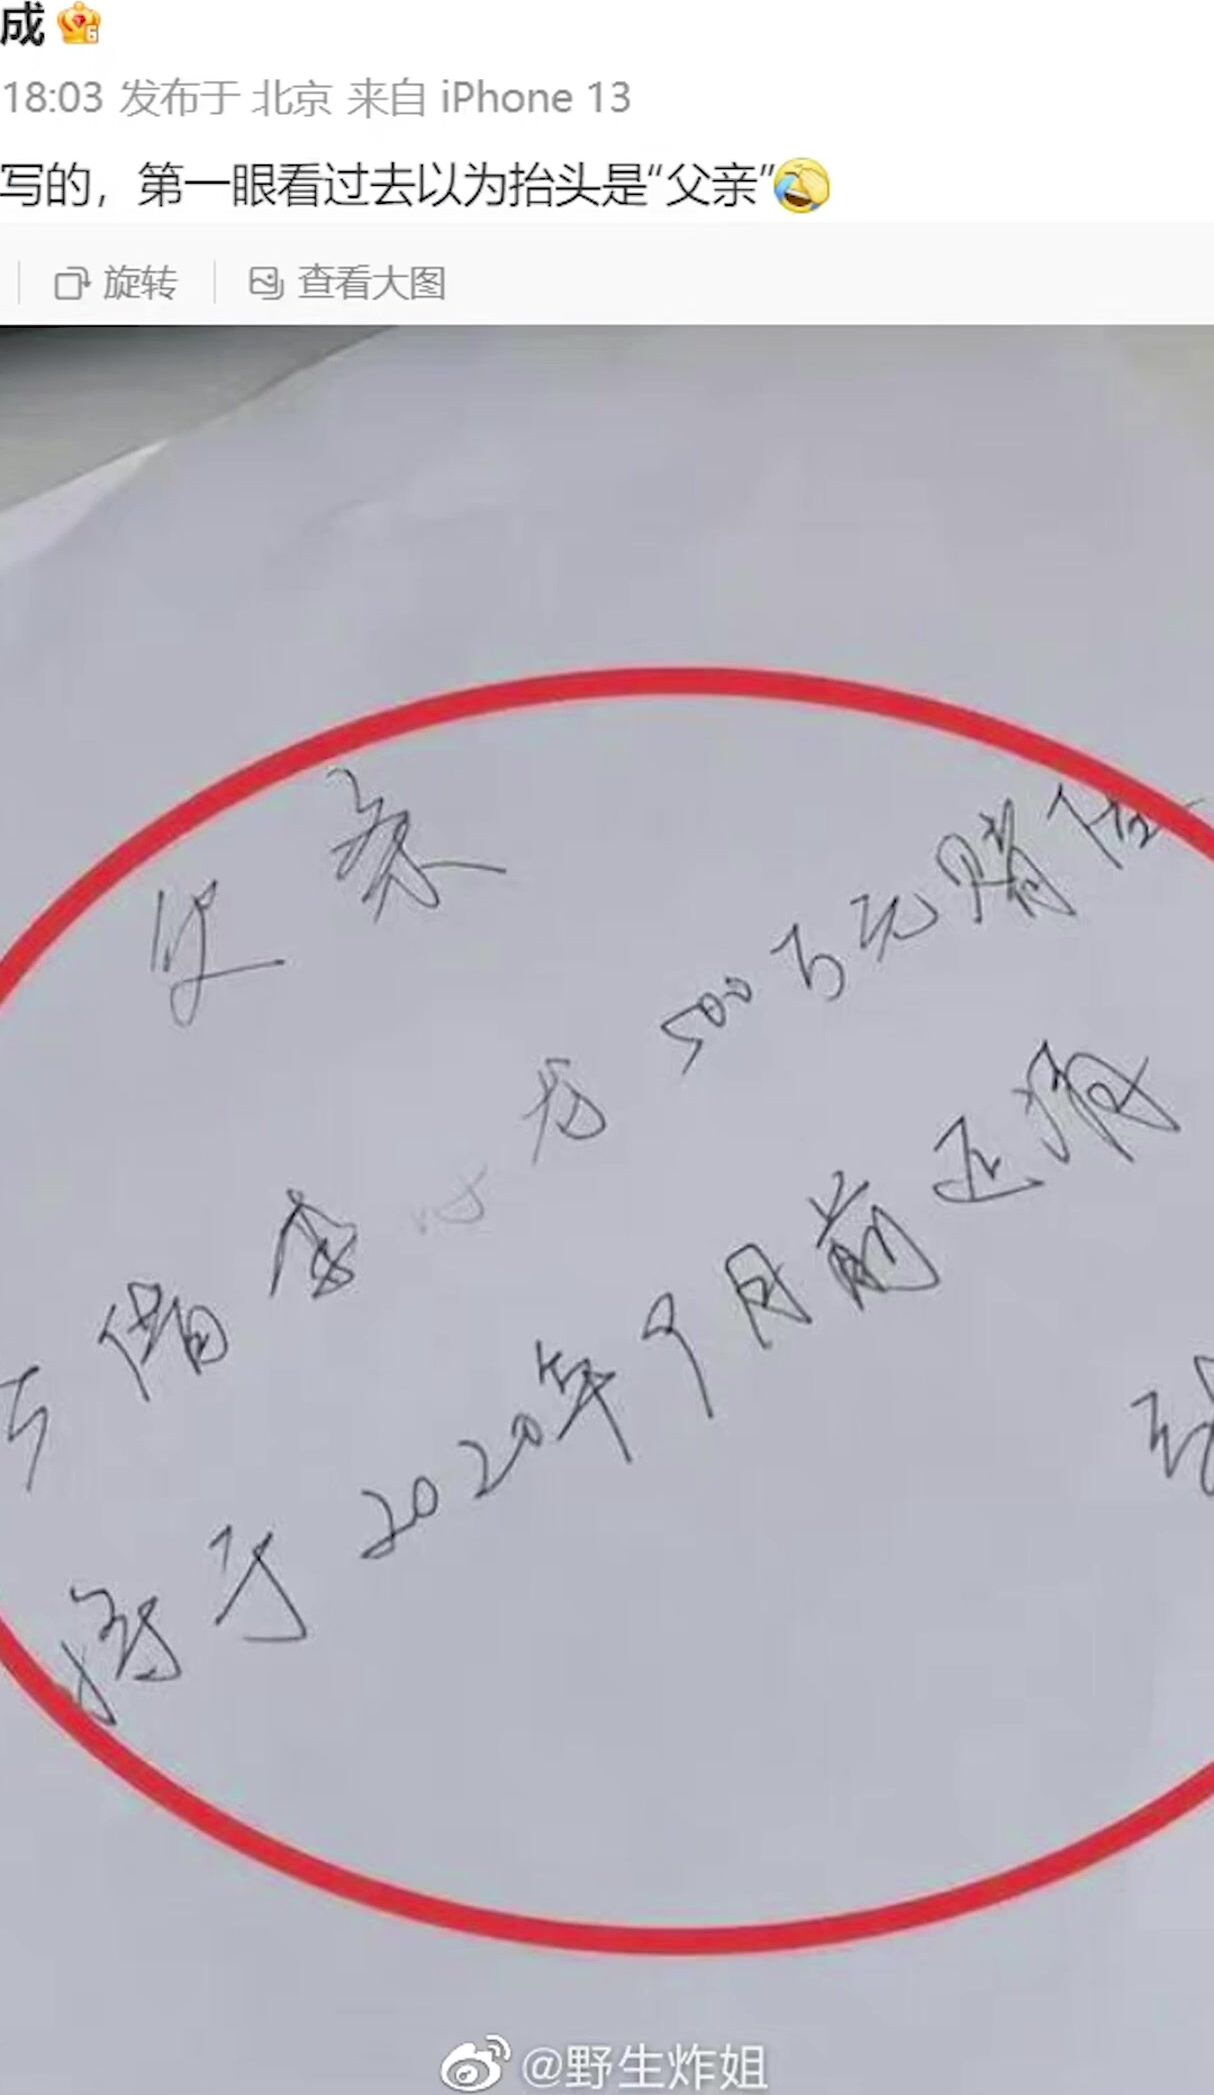 成
18:03 发布于 北京 来自 iPhone 13
写的，第一眼看过去以为抬头是“父亲”
旋转 查看大图
欠条
亏借 500万元赌债
将于2020年9月前还清
@野生炸姐